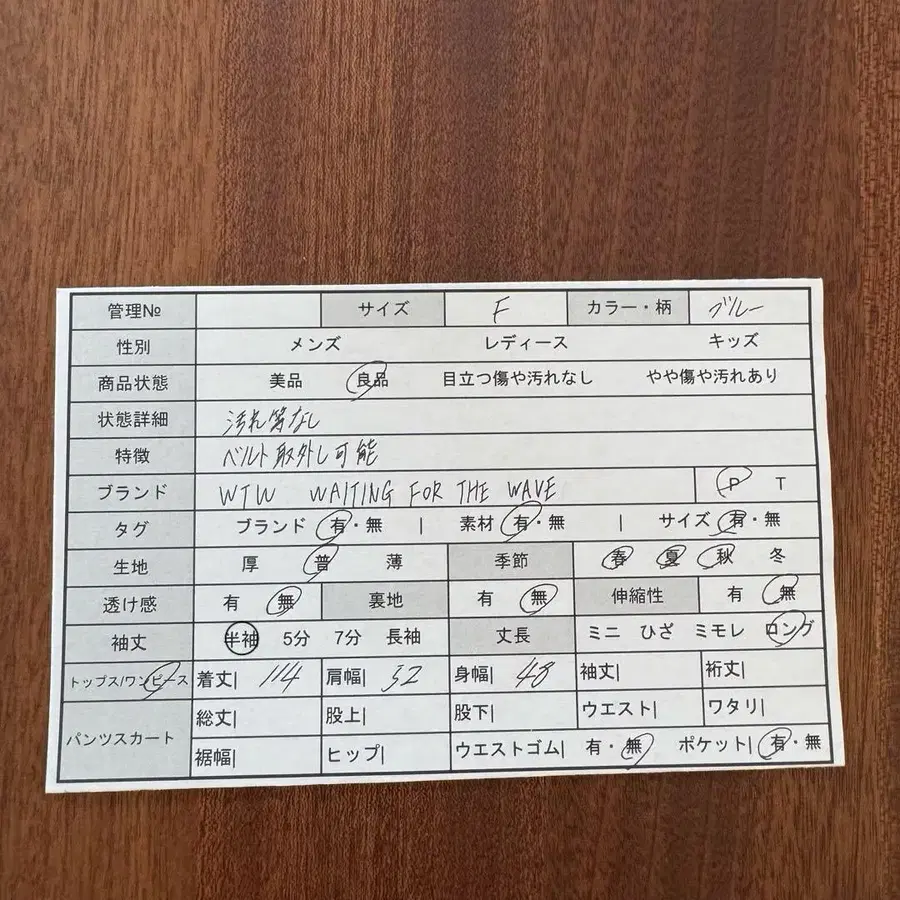 管理№ サイズ F カラー・柄 ブルー
性別 メンズ レディース キッズ
商品状態 美品 良品 目立つ傷や汚れなし やや傷や汚れあり
状態詳細 汚れ等なし
特徴 ベルト取外し可能
ブランド WTW WAITING FOR THE WAVE P T
タグ ブランド 有・無 | 素材 有・無 | サイズ 有・無
生地 厚 普 薄 季節 春 夏 秋 冬
透け感 有 無 裏地 有 無 伸縮性 有 無
袖丈 半袖 5分 7分 長袖 丈長 ミニ ひざ ミモレ ロング
トップス/ワンピース 着丈| 114 肩幅| 52 身幅| 48 袖丈| 裄丈|
パンツスカート 総丈| 股上| 股下| ウエスト| ワタリ|
裾幅| ヒップ| ウエストゴム| 有・無 ポケット| 有・無